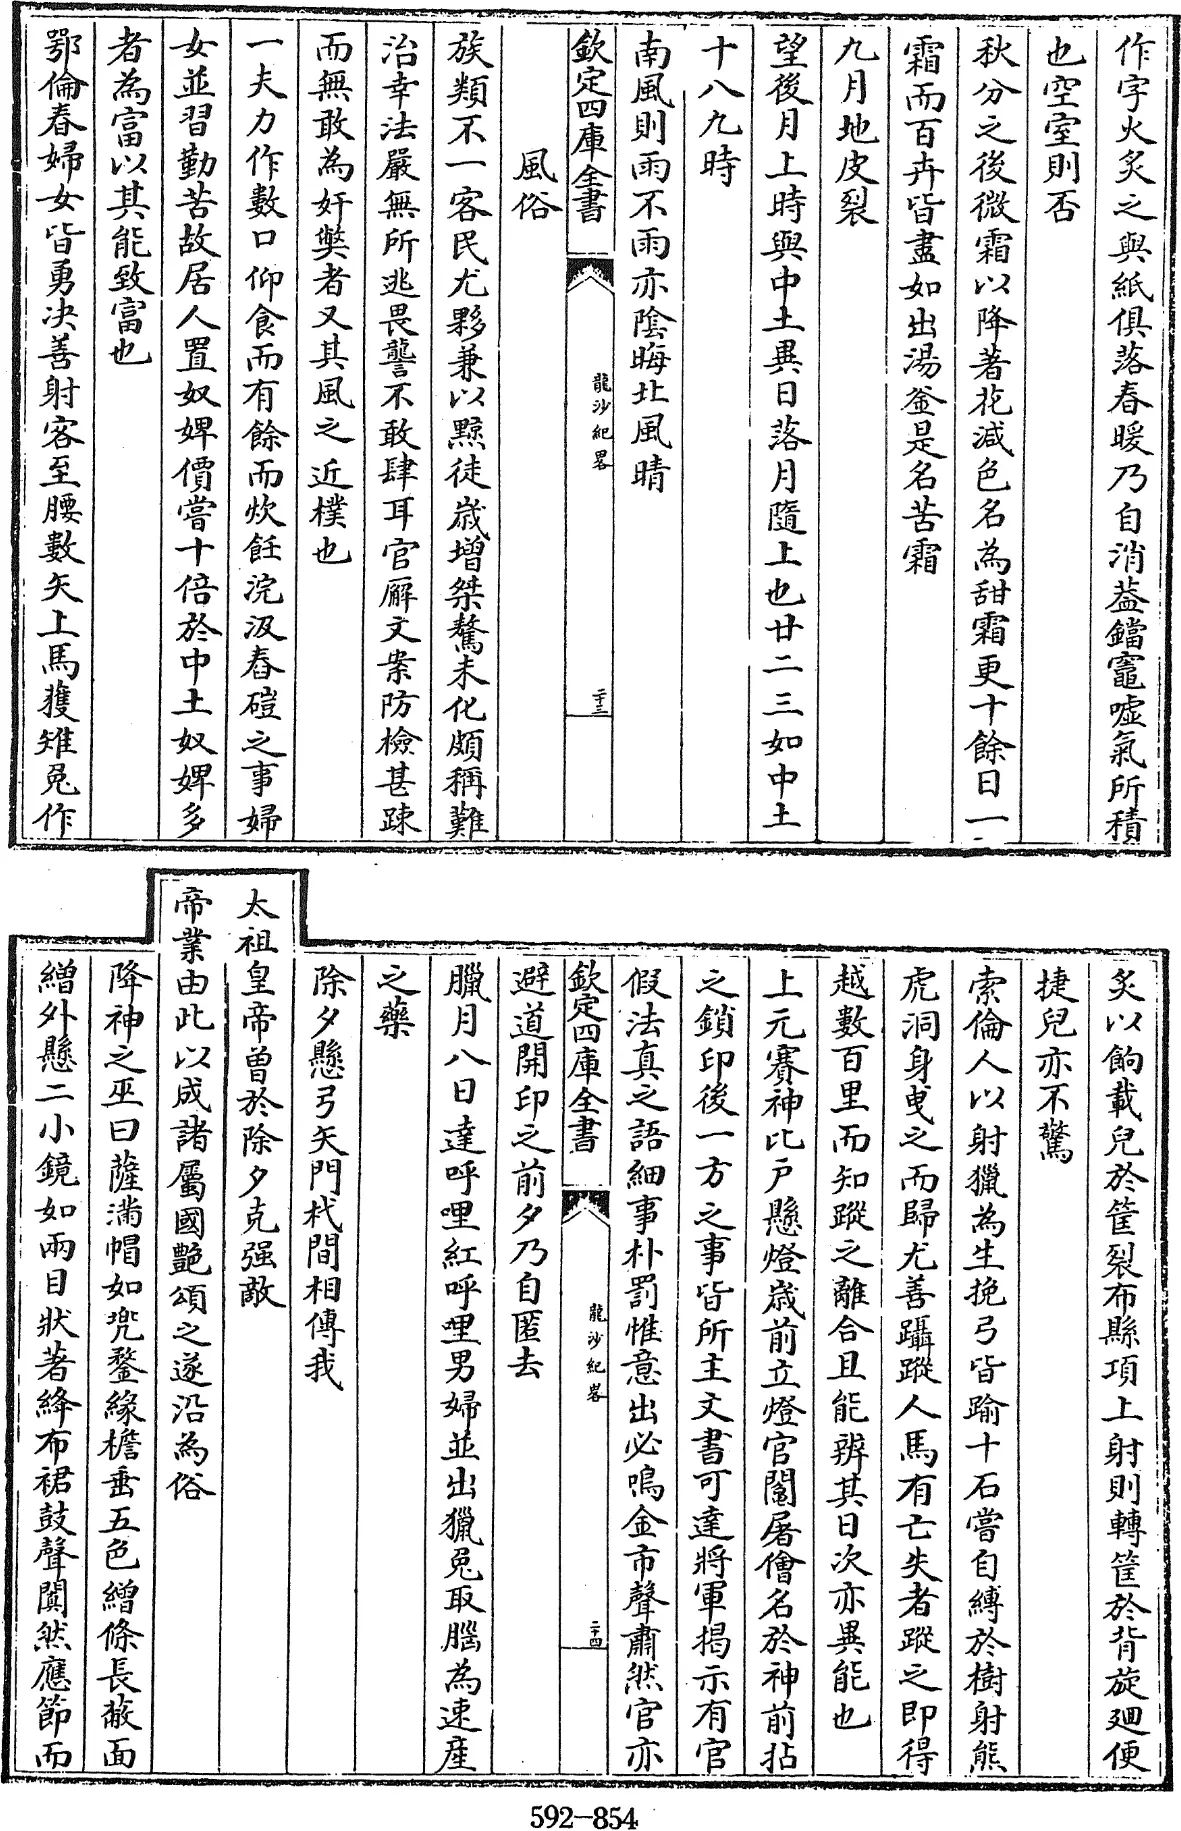 作字火炙之與紙俱落春暖乃自消葢鐺竈噓氣所積
也空室則否
秋分之後微霜以降著花減色名為甜霜更十餘日一
霜而百卉皆盡如出湯釜是名苦霜
九月地皮裂
望後月上時與中土異日落月隨上也廿二三如中土
十八九時
南風則雨不雨亦陰晦北風晴
欽定四庫全書
龍沙紀畧
二十三
風俗
族類不一客民尤夥兼以黥徒歲增桀驁未化頗稱難
治幸法嚴無所逃畏讋不敢肆耳官廨文案防檢甚疎
而無敢為奸獘者又其風之近樸也
一夫力作數口仰食而有餘而炊飪浣汲舂磑之事婦
女並習勤苦故居人置奴婢價嘗十倍於中土奴婢多
者為富以其能致富也
鄂倫春婦女皆勇決善射客至腰數矢上馬獲雉兔作
炙以餉載兒於筐裂布縣項上射則轉筐於背旋廻便
捷兒亦不驚
索倫人以射獵為生挽弓皆踰十石嘗自縛於樹射熊
虎洞身曵之而歸尤善躡蹤人馬有亡失者蹤之即得
越數百里而知蹤之離合且能辨其日次亦異能也
上元賽神比户懸燈歲前立燈官鬮屠儈名於神前拈
之鎖印後一方之事皆所主文書可達將軍揭示有官
假法真之語細事朴罰惟意出必鳴金市聲肅然官亦
欽定四庫全書
龍沙紀畧
二十四
避道開印之前夕乃自匿去
臘月八日達呼哩紅呼哩男婦並出獵兔取腦為速產
之藥
除夕懸弓矢門栰間相傳我
太祖皇帝曾於除夕克强敵
帝業由此以成諸屬國艷頌之遂沿為俗
降神之巫曰薩滿帽如兜鍪緣檐垂五色繒條長蔽面
繒外懸二小鏡如兩目狀著絳布裙鼓聲闐然應節而
592-854